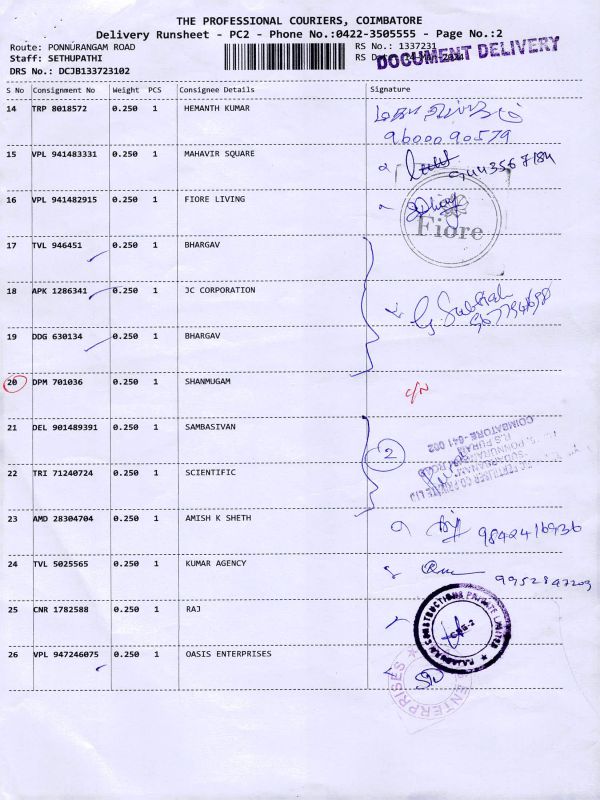 THE PROFESSIONAL COURIERS, COIMBATORE
Delivery Runsheet - PC2 - Phone No.:0422-3505555 - Page No.:2
Route: PONNURANGAM ROAD
RS No.: 1337231
Staff: SETHUPATHI
DOCUMENT DELIVERY
DRS No.: DCJB133723102
S No Consignment No Weight PCS Consignee Details Signature
14 TRP 8018572 0.250 1 HEMANTH KUMAR
96000 90579
15 VPL 941483331 0.250 1 MAHAVIR SQUARE
16 VPL 941482915 0.250 1 FIORE LIVING
Fiore
17 TVL 946451 0.250 1 BHARGAV
18 APK 1286341 0.250 1 JC CORPORATION
19 DDG 630134 0.250 1 BHARGAV
20 DPM 701036 0.250 1 SHANMUGAM C/N
21 DEL 901489391 0.250 1 SAMBASIVAN
COIMBATORE - 641 002
2
22 TRI 71240724 0.250 1 SCIENTIFIC
23 AMD 28304704 0.250 1 AMISH K SHETH
9842416936
24 TVL 5025565 0.250 1 KUMAR AGENCY
9952847209
25 CNR 1782588 0.250 1 RAJ
CONSTRUCTIONS PRIVATE LIMITED
CBE-2
26 VPL 947246075 0.250 1 OASIS ENTERPRISES
ENTERPRISES